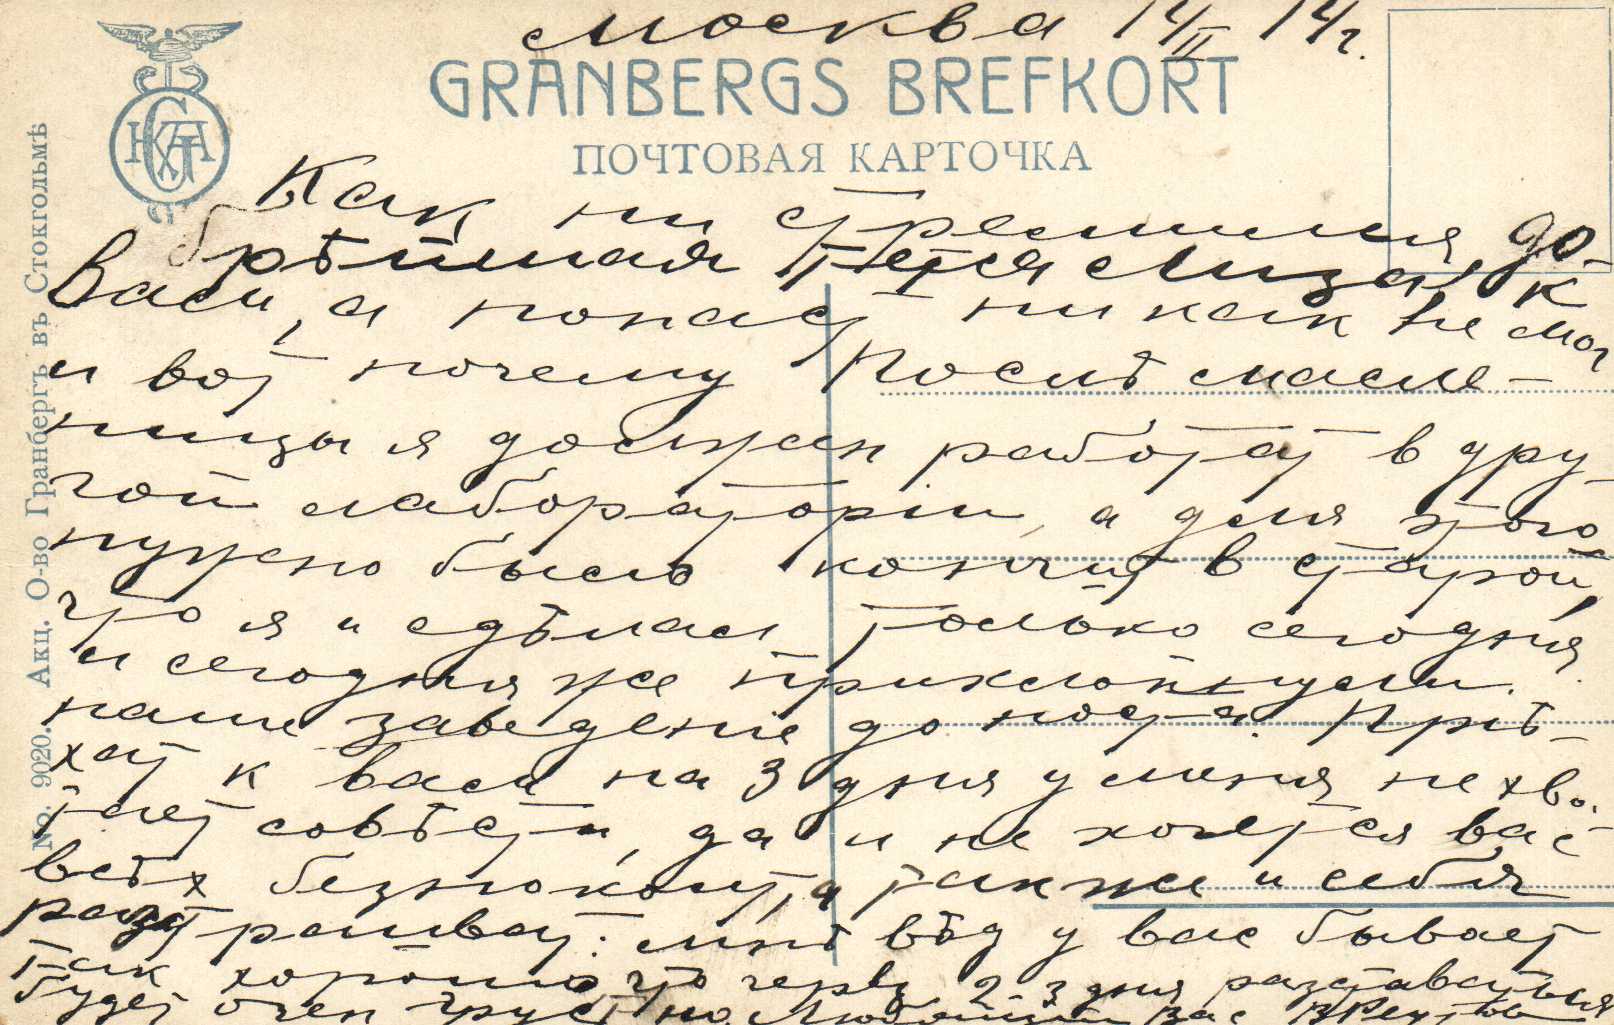 Москва 14/II 14 г.
GRANBERGS BREFKORT
ПОЧТОВАЯ КАРТОЧКА
No. 9020. Акц. О-во Гранбергъ въ Стокгольмѣ
Как ни стремился, до-
брѣйшая тетя Лиза, к
Вам, а попасть никак не мог
и вот почему Послѣ масле-
ницы я должен работать в дру-
гой лабораторіи, а для этого
нужно было кончить в старой,
что я и сдѣлал только сегодня
и сегодня же прихлопнули
наше заведеніе до поста. Пріѣ-
хать к вам на 3 дня у меня не хва-
тает совѣсти, да и не хочется вас
всѣх безпокоить, а также и себя
разстраивать: мнѣ вѣдь у вас бывает
так хорошо что через 2-3 дня разставаться
будет очень грустно. Любящій Вас